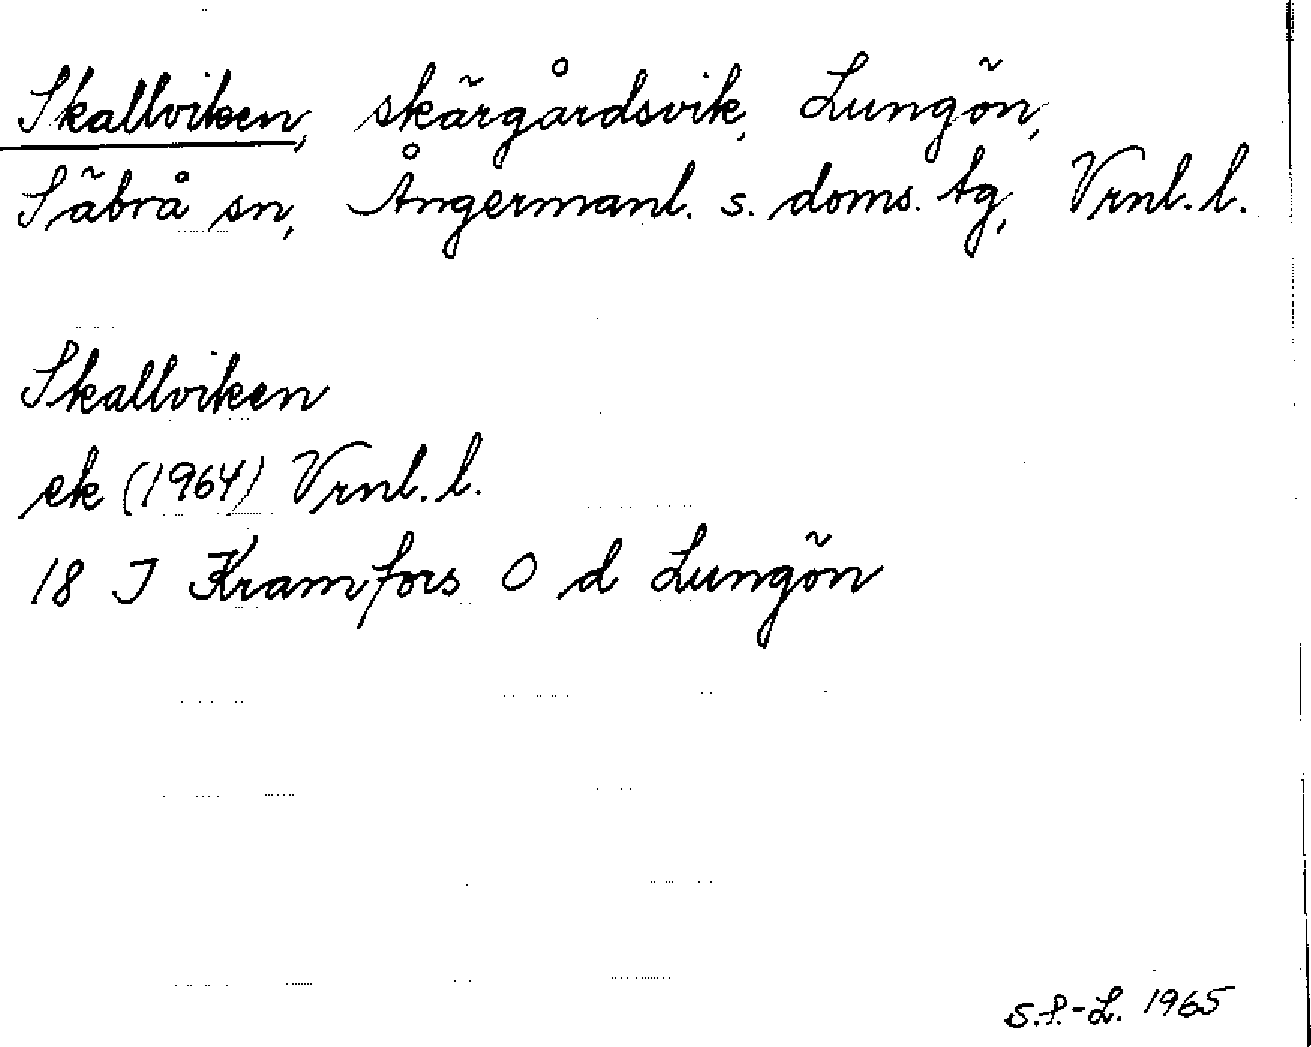 Skallviken, skärgårdsvik, Lungön,
Säbrå sn, Ångermanl. s. doms. tg, Vrnl. l.
Skallviken
ek (1964) Vrnl. l.
18 I Kramfors O d Lungön
S.f.-L. 1965